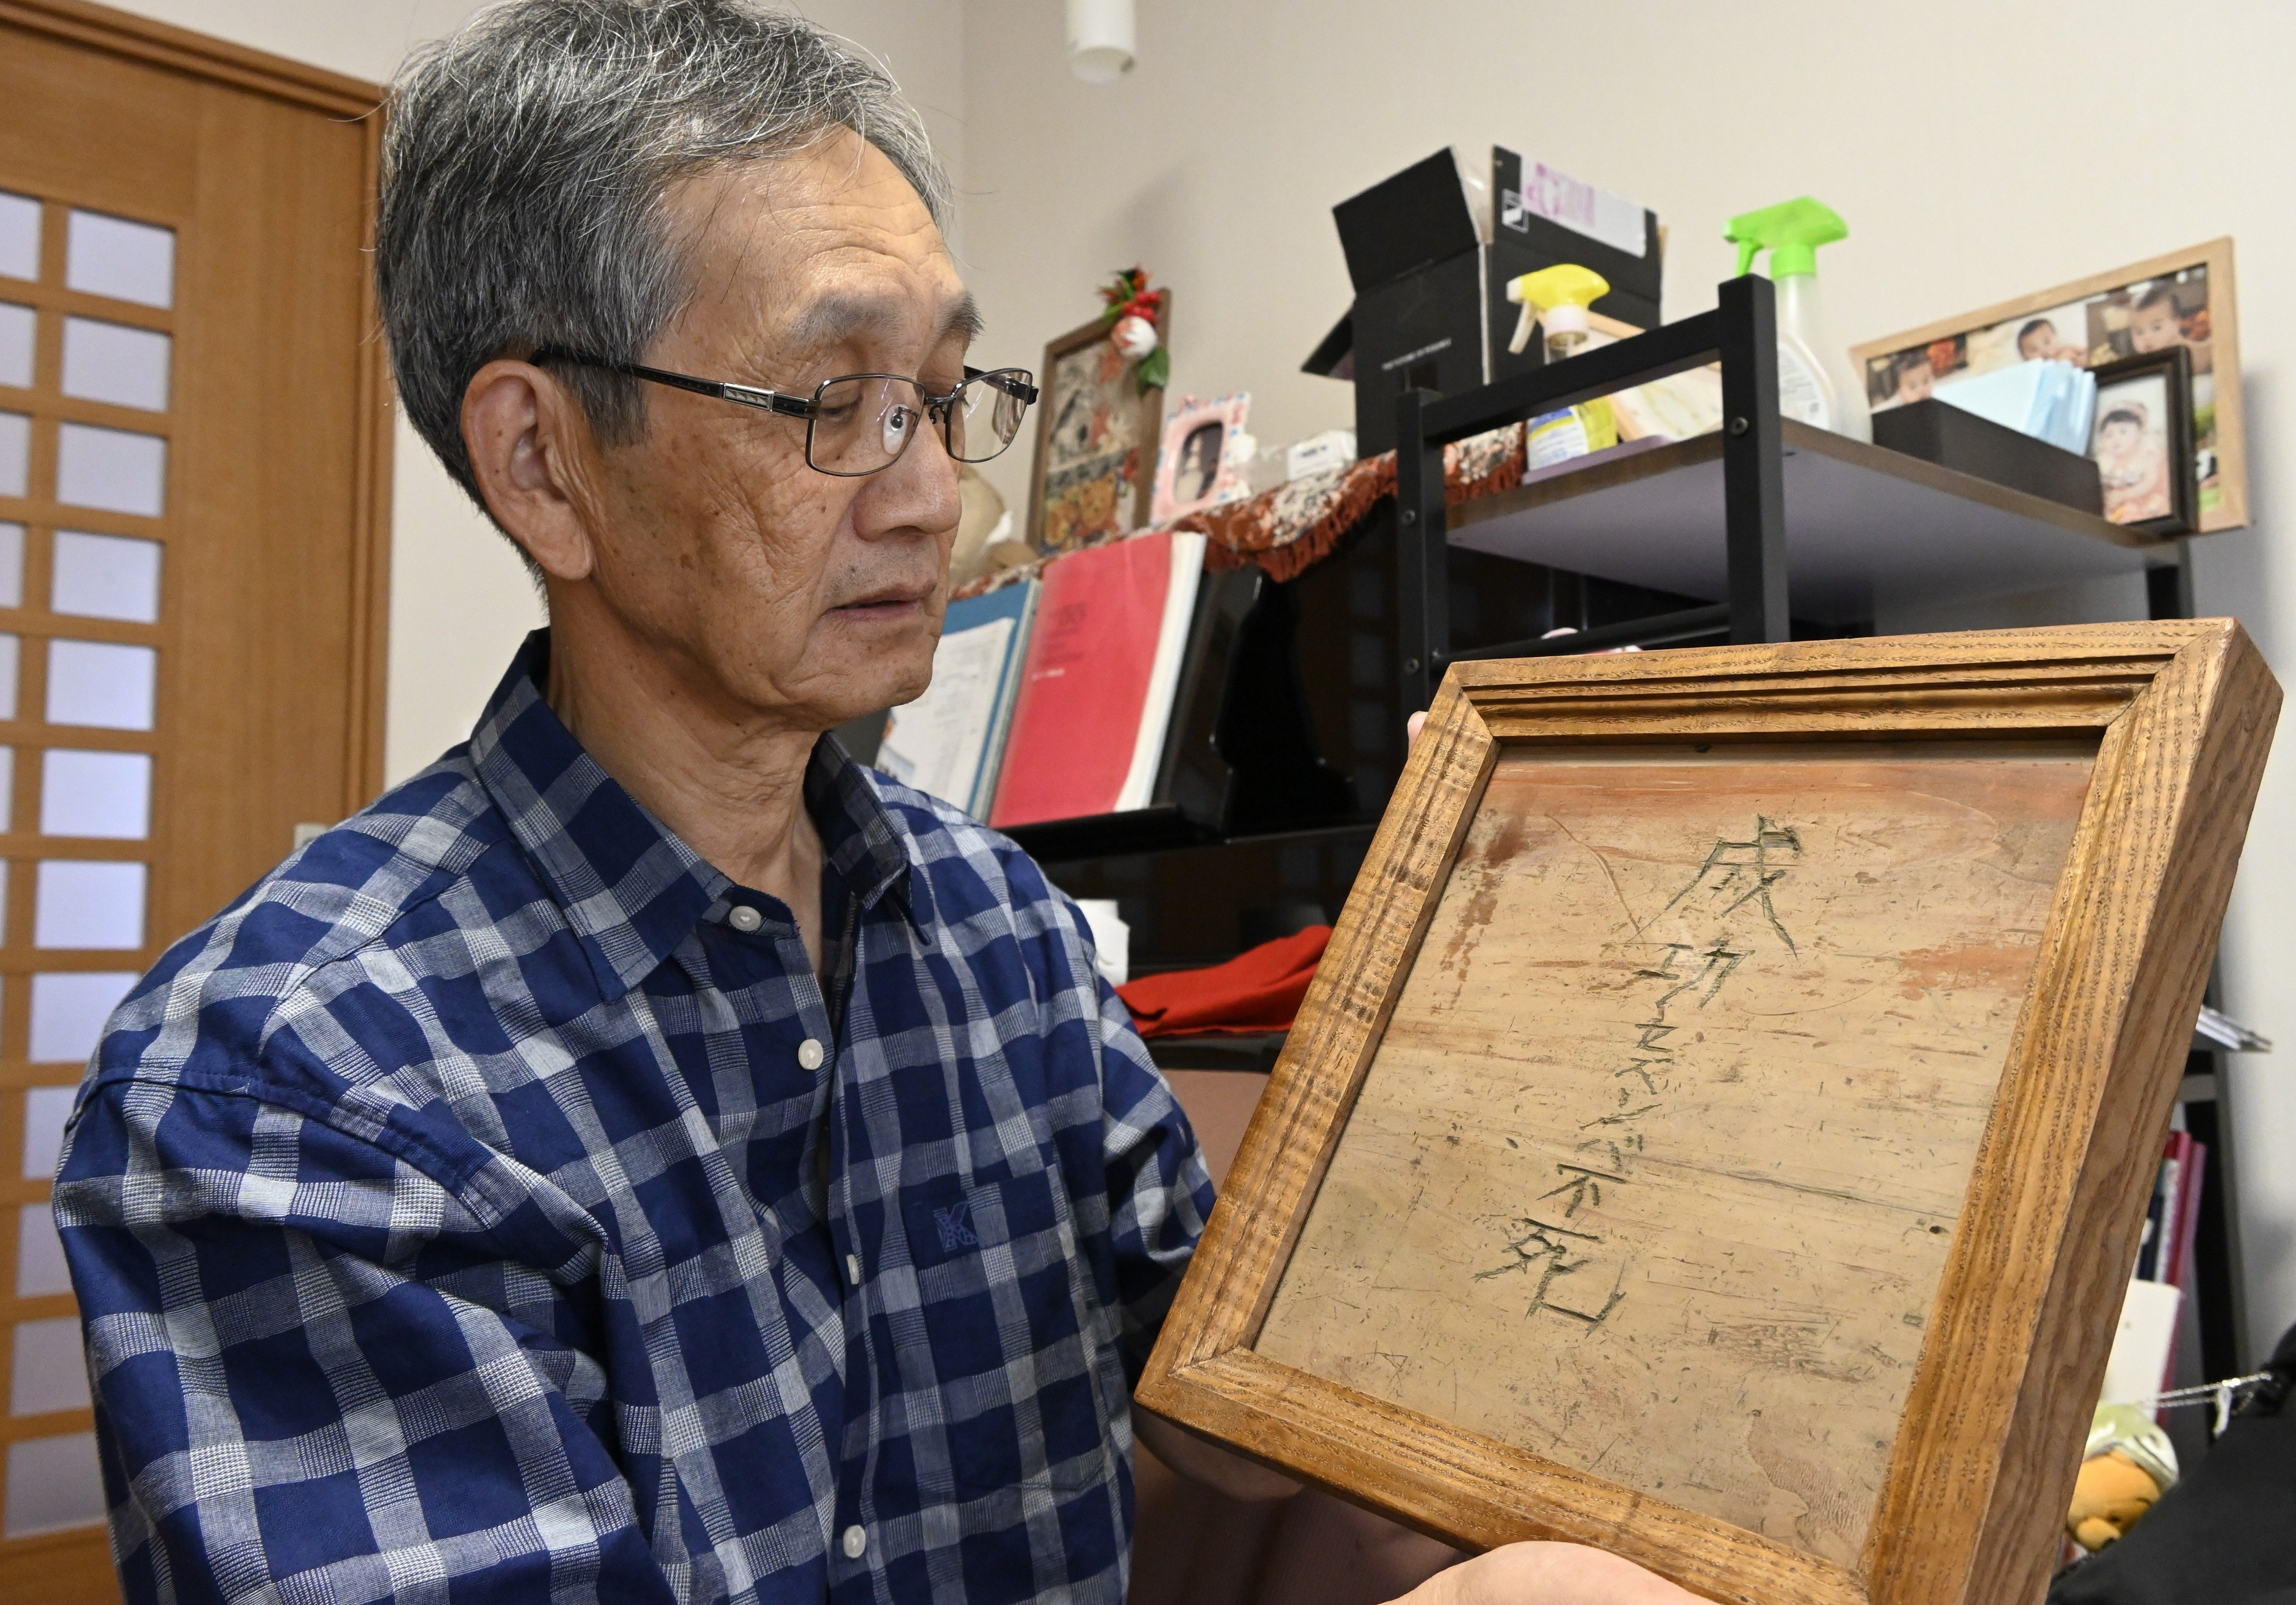 成功セズンバ不死